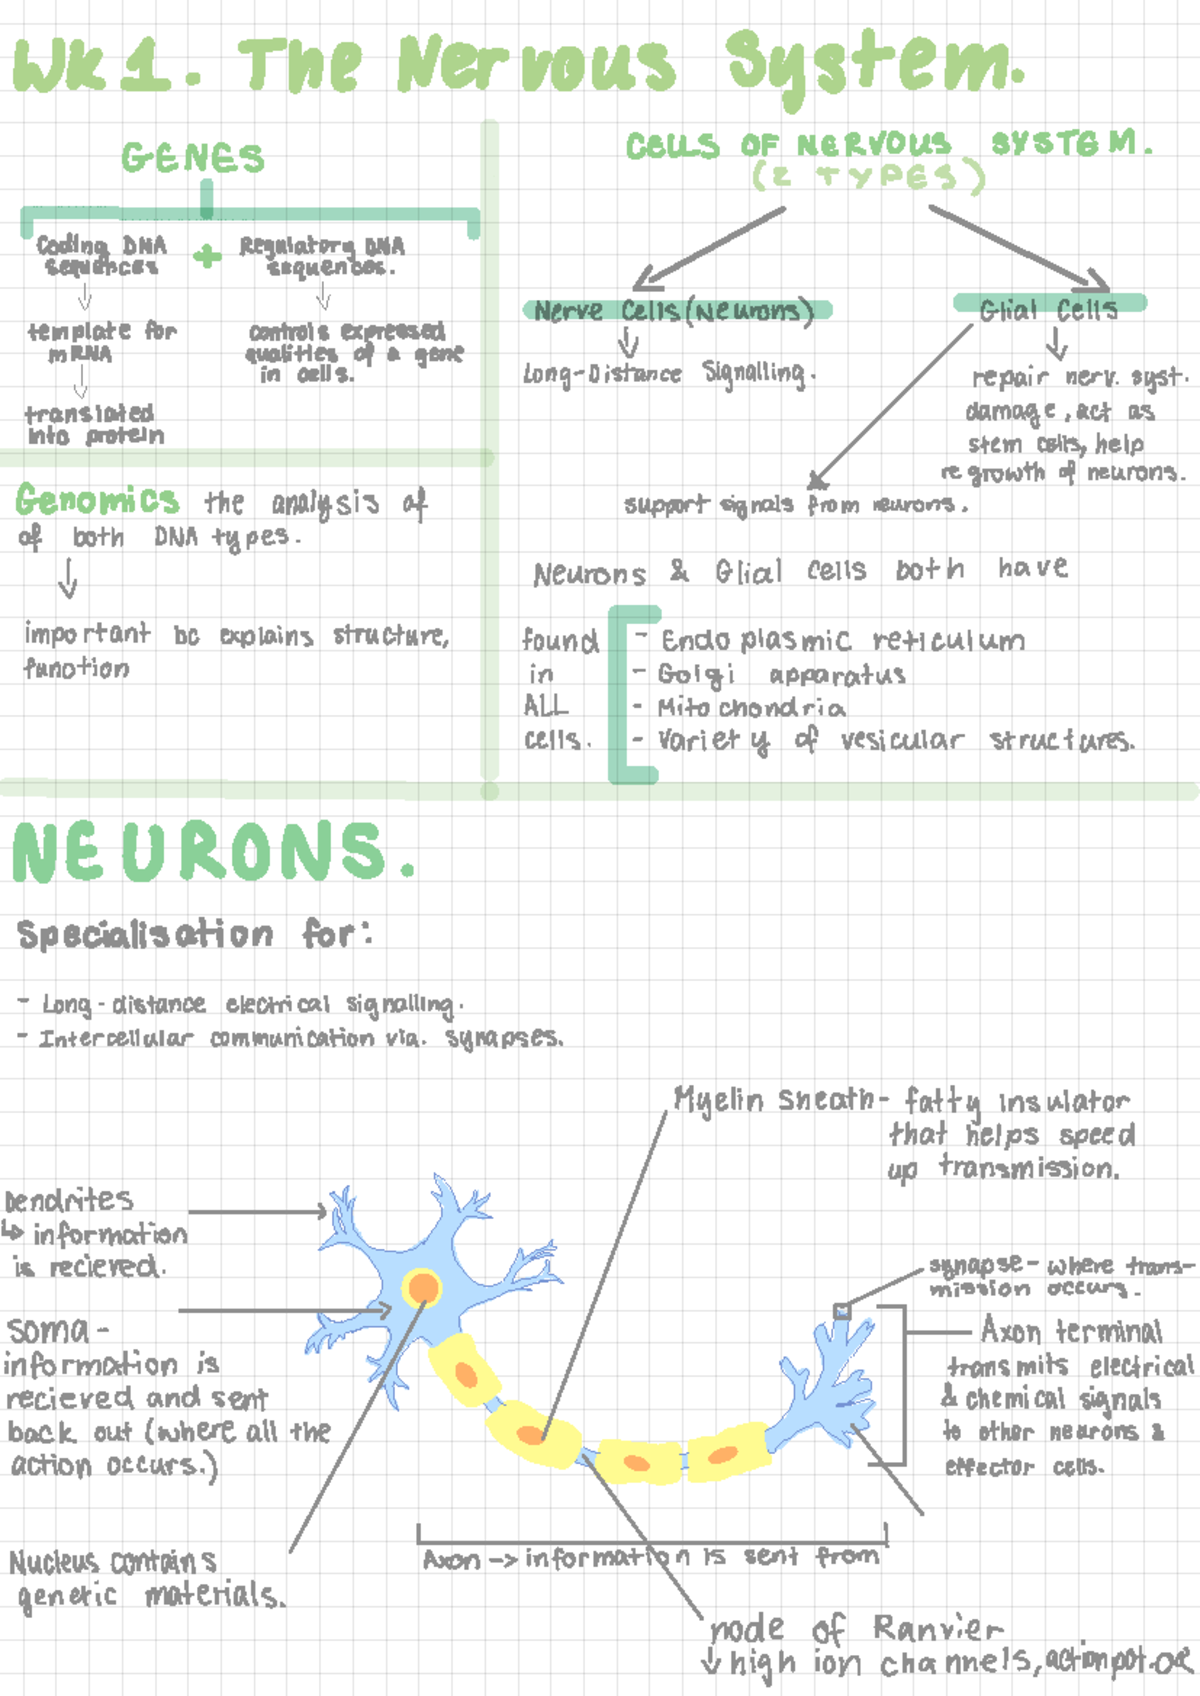 Wk1. The Nervous System.
GENES
Coding DNA
sequences
+
Regulatory DNA
sequences.
template for
mRNA
translated
into protein
controls expressed
qualities of a gene
in cells.
Genomics the analysis of
of both DNA types.
important bc explains structure,
function
CELLS OF NERVOUS SYSTEM.
(2 TYPES)
Nerve Cells (Neurons)
Long-Distance Signalling.
Glial Cells
repair nerv. syst.
damage, act as
stem cells, help
regrowth of neurons.
support signals from neurons.
Neurons & Glial cells both have
found
in
ALL
cells.
- Endoplasmic reticulum
- Golgi apparatus
- Mitochondria
- Variety of vesicular structures.
NEURONS.
Specialisation for:
- Long-distance electrical signalling.
- Intercellular communication via. synapses.
Myelin sheath- fatty insulator
that helps speed
up transmission.
Dendrites
↳ information
is recieved.
soma-
information is
recieved and sent
back out (where all the
action occurs.)
Nucleus contains
genetic materials.
synapse- where trans-
mission occurs.
Axon terminal
transmits electrical
& chemical signals
to other neurons &
effector cells.
Axon -> information is sent from
node of Ranvier
↓ high ion channels, action pot.